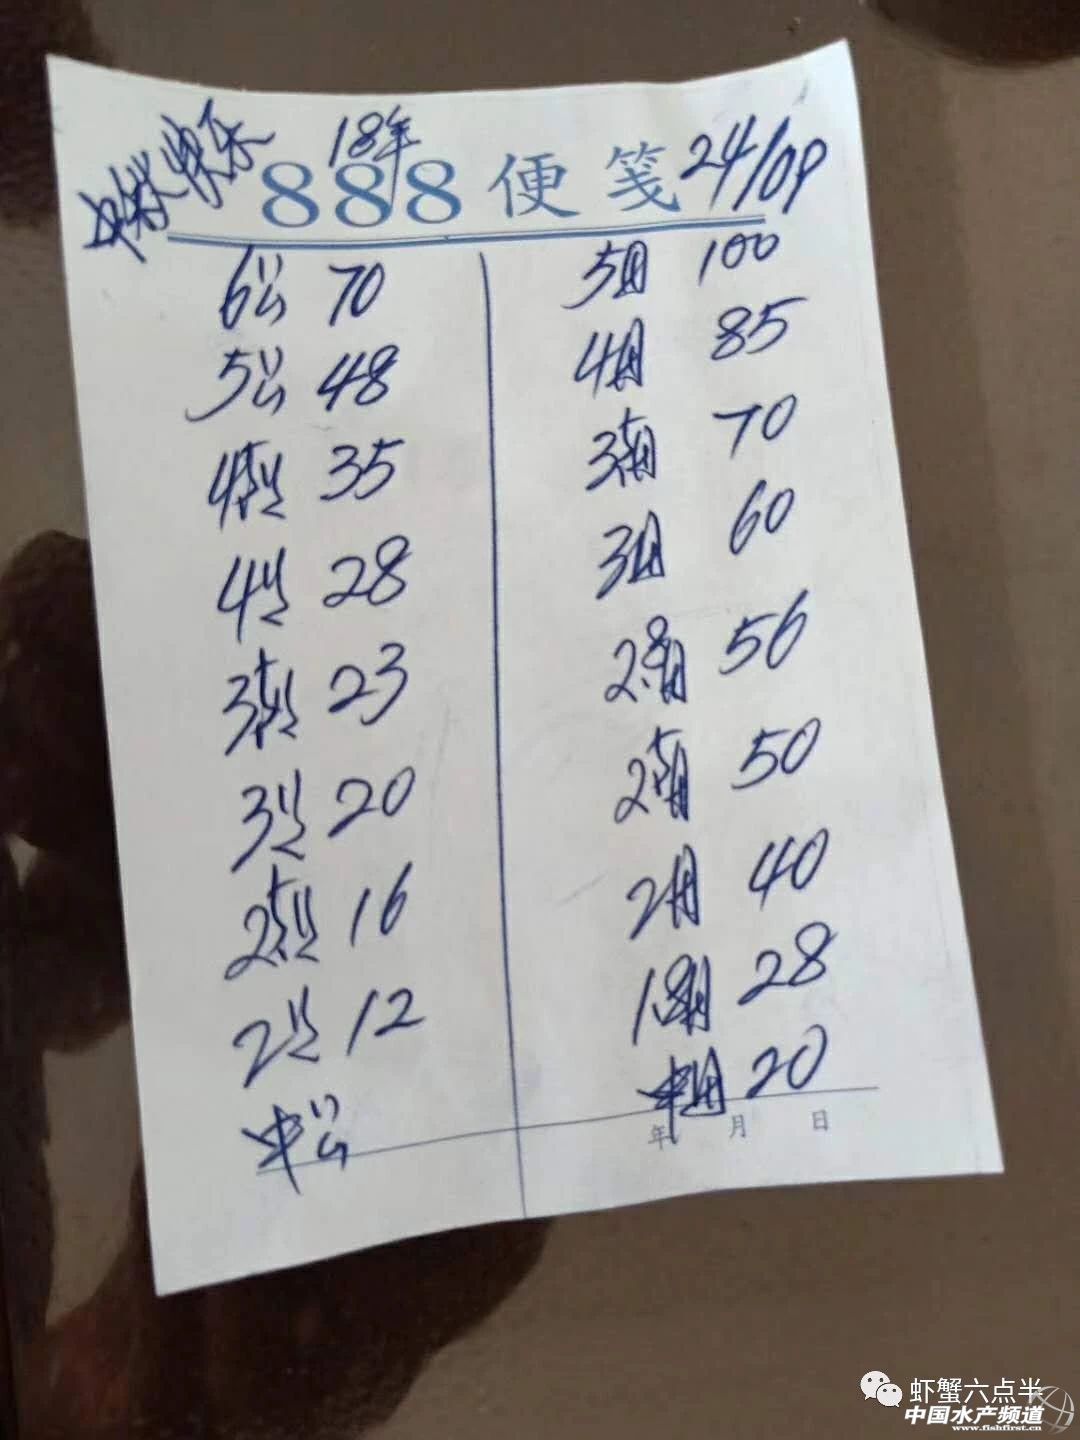 中秋快乐
18年
888便笺
24/09
6公 70
5公 48
4.5公 35
4公 28
3.5公 23
3公 20
2.5公 16
2公 12
中公
5母 100
4母 85
3.5母 70
3母 60
2.8母 56
2.5母 50
2母 40
1.8母 28
中母 20
年 月 日
虾蟹六点半
中国水产频道
www.fishfirst.cn